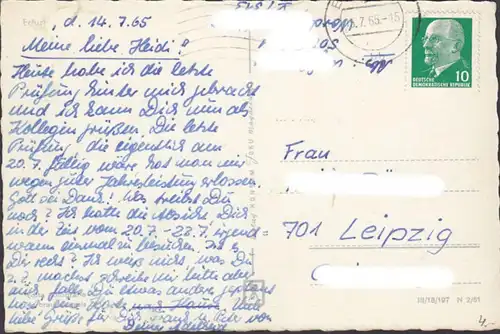 d. 14.7.65
Meine liebe Heidi!
Heute habe ich die letzte
Prüfung hinter mich gebracht
und ich kann Dich nun als
Kollegin grüßen. Die letzte
Prüfung, die eigentlich am
20.7. fällig wäre hat man mir
wegen guter Jahresleistung erlassen
Gott sei Dank! Was treibst Du
noch? Ich hatte die Absicht Dich
in der Zeit vom 20.7. - 22.7. irgend
wann einmal zu besuchen. Ist es
Dir recht? Ich weiß nicht, was Du
z. Z. machst schreibe mir bitte aber
falls Du etwas anderes geplant
hast eine Karte und
liebe Grüße für Dich, und
Deine
.7.65.-15
DEUTSCHE
DEMOKRATISCHE REPUBLIK
10
Frau
701 Leipzig
III/18/197 N 2/61